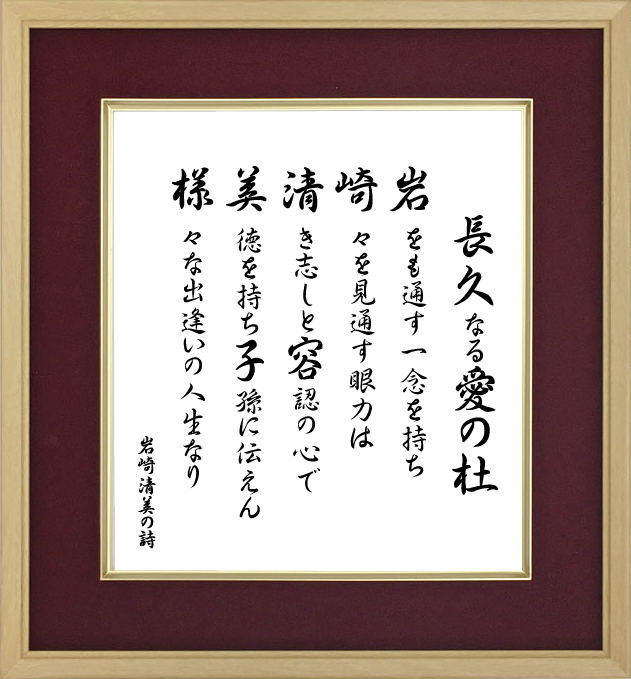 長久なる愛の杜
岩をも通す一念を持ち
崎々を見通す眼力は
清き志しと容認の心で
美徳を持ち子孫に伝えん
様々な出逢いの人生なり
岩崎清美の詩